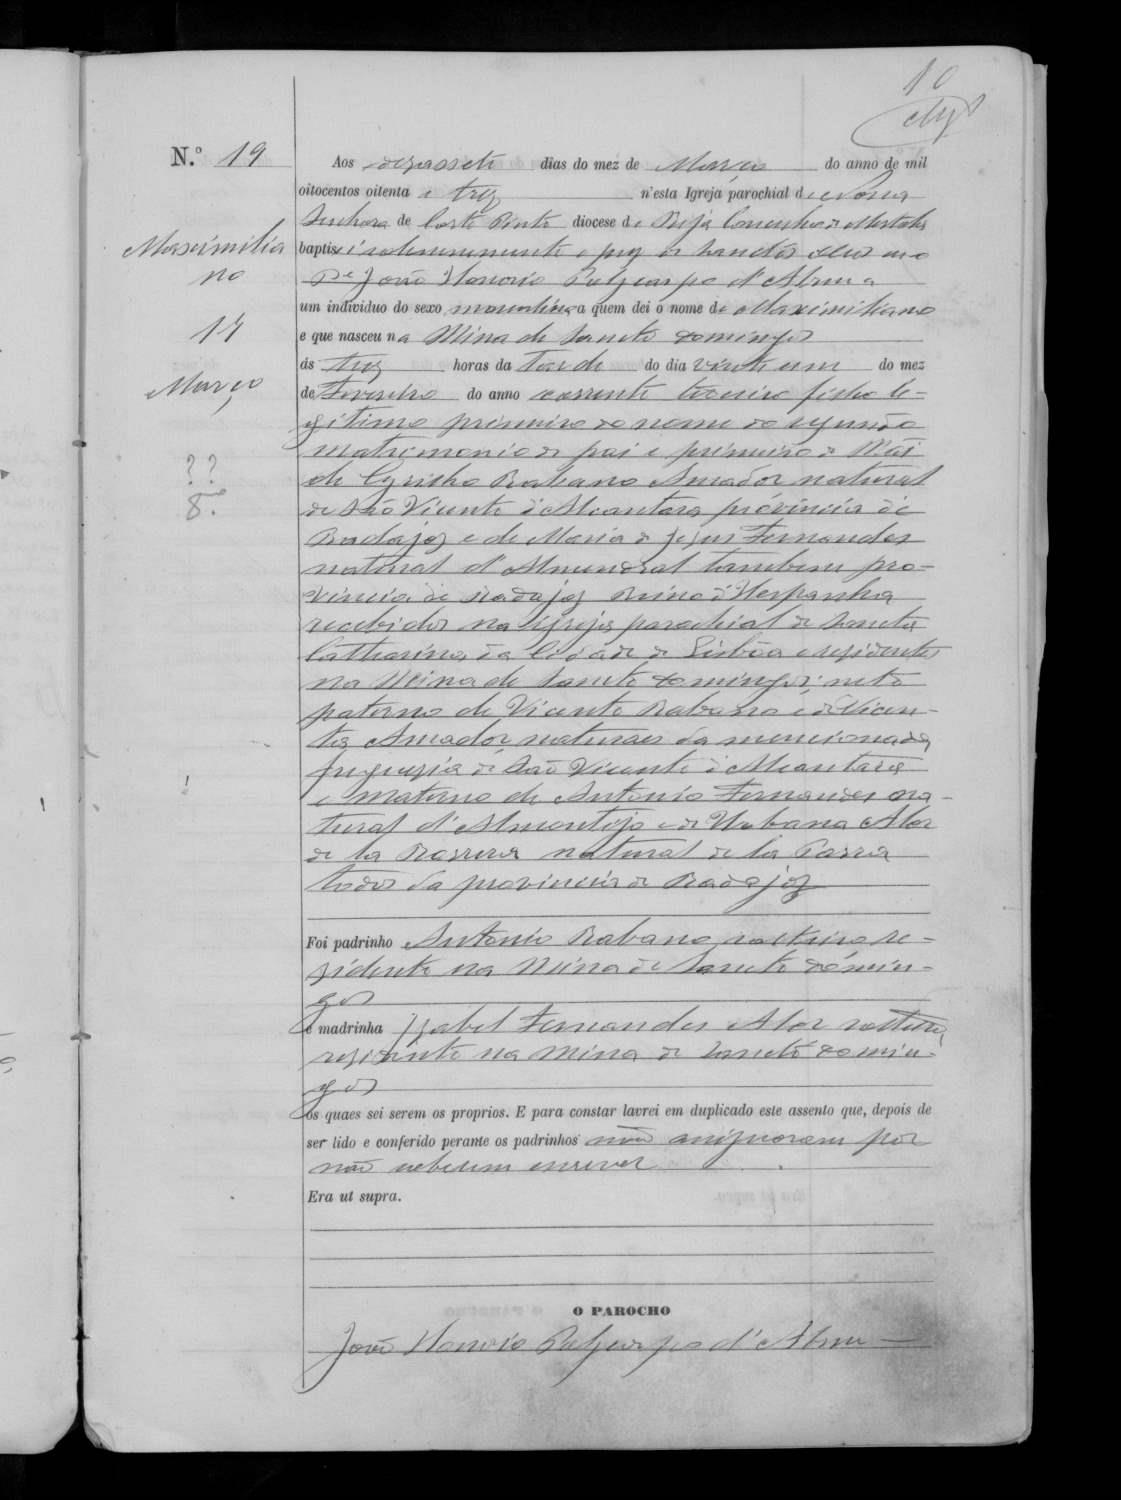 10
N.º 19
Aos dezassete dias do mez de Março do anno de mil
oitocentos oitenta e trez n'esta Igreja parochial de Nossa
Senhora de Corte Pinto diocese de Beja Concelho de Mertola
baptisei solemnemente e puz os Sanctos oleos eu o
Pe João Honorio Policarpo d'Abreu a
um individuo do sexo masculino a quem dei o nome de Maximiliano
e que nasceu na Mina de Sancto Domingos
ás trez horas da Tarde do dia vinte um do mez
de Fevereiro do anno corrente terceiro filho le-
gitimo primeiro do nome do segundo
matrimonio do pai e primeiro da Mãi
de Cyrisko Rabano Amador natural
de São Vicente d'Alcantara provincia de
Badajoz e de Maria de Jesus Fernandes
natural d'Almendral tambem pro-
vincia de Badajoz Reino d'Hespanha
recebidos na igreja parochial de Sancta
Catharina da Cidade de Lisbôa e residentes
na Mina de Sancto Domingos: neto
paterno de Vicente Rabano e de Vicen-
ta Amador naturaes da mencionada
freguesia de São Vicente d'Alcantara
e Materno de Antonio Fernandes na-
tural d'Almontijo e de Urbana Alor
de la natural de la Parra
todos da provincia de Badajoz
Foi padrinho Antonio Rabano solteiro re-
sidente na Mina de Sancto Domin-
gos
e madrinha Izabel Fernandes Alor solteira
residente na Mina de Sancto Domin-
gos
os quaes sei serem os proprios. E para constar lavrei em duplicado este assento que, depois de
ser lido e conferido perante os padrinhos não assignaram por
não saberem escrever
Era ut supra.
O PAROCHO
João Honorio Policarpo d'Abreu
Maximilia
no
17
Março
? ?
8.